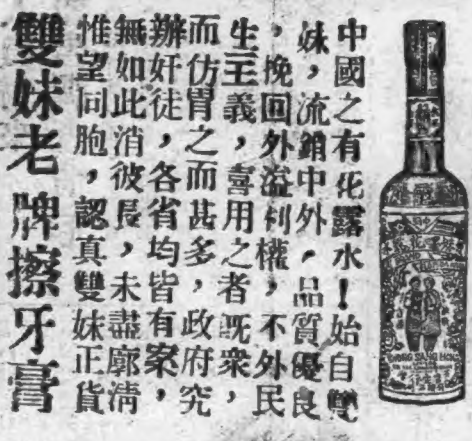 中國之有花露水！始自雙
妹，流銷中外，品質優良
，挽回外溢利權，不外民
生主義，喜用之者既衆，
而仿冒之而甚多，政府究
辦奸徒，各省均皆有案，
無如此消彼長，未盡廓清
惟望同胞，認真雙妹正貨
雙妹老牌擦牙膏
KWONG SANG HONG